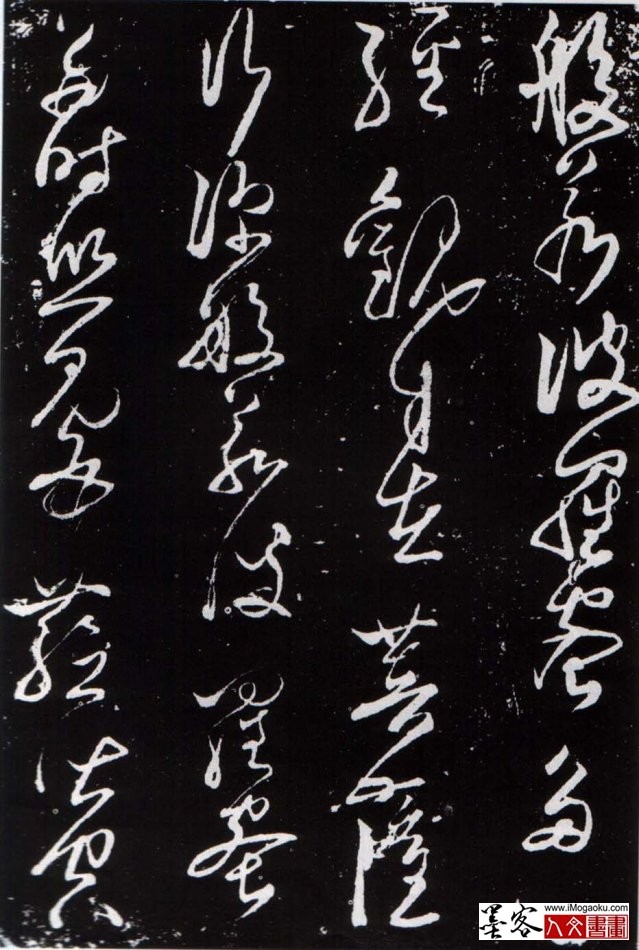 般若波羅蜜多
經觀自在菩薩
行深般若波羅蜜
多時照見五蘊皆空
墨客
www.iMogaoku.com
人文書畫